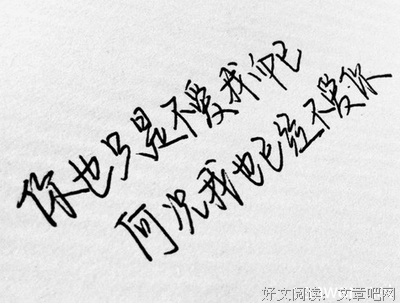 你也只是不爱我而已
何况我也已经不爱你
好文阅读：文章吧网